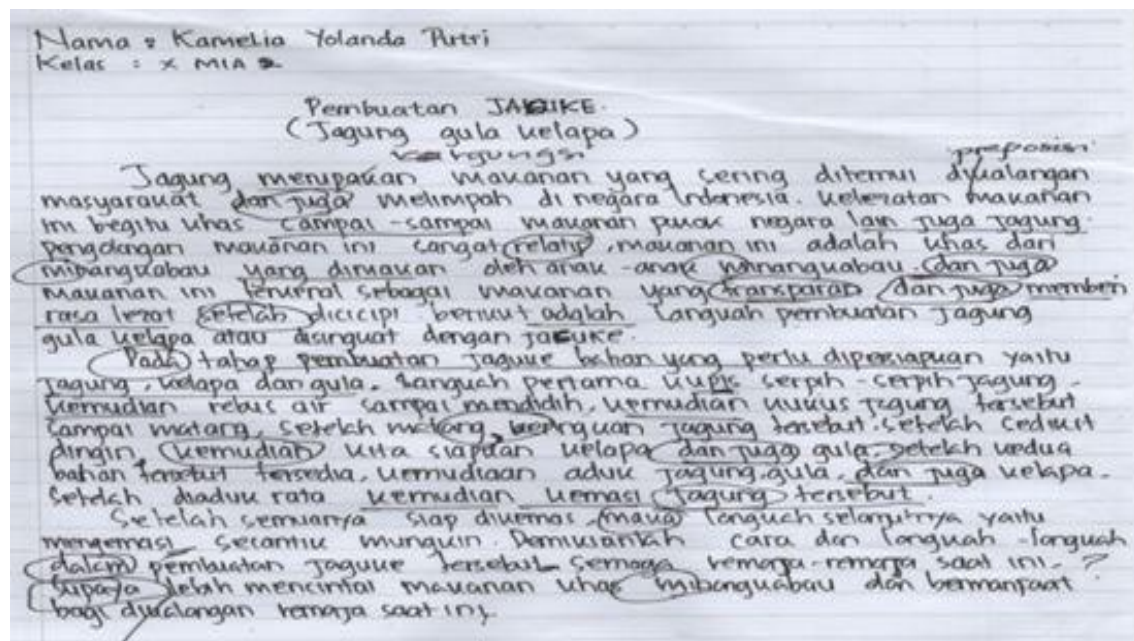 Nama : Kamelia Yolanda Putri
Kelas : X MIA 2
Pembuatan JAGUKE.
(Jagung gula kelapa)
preposisi
Jagung merupakan makanan yang sering ditemui dikalangan
masyarakat dan juga melimpah di negara Indonesia. Kelezatan makanan
ini begitu khas sampai-sampai makanan pokok negara lain juga jagung.
pengolahan makanan ini sangat relatif, makanan ini adalah khas dari
mibangkabau yang dimakan oleh anak-anak minangkabau. dan juga
makanan ini terkenal sebagai makanan yang transparan dan juga memberi
rasa lezat setelah dicicipi. berikut adalah langkah pembuatan jagung
gula kelapa atau disingkat dengan jaguke.
Pada tahap pembuatan jaguke bahan yang perlu dipersiapkan yaitu
jagung, kelapa dan gula. Langkah pertama serpih-serpih jagung.
kemudian rebus air sampai mendidih, kemudian kukus jagung tersebut
sampai matang, setelah matang, jagung tersebut. setelah
dingin, kemudian kita siapkan kelapa dan juga gula, setelah kedua
bahan tersebut tersedia, kemudiaan aduk jagung, gula, dan juga kelapa.
Setelah diaduk rata kemudian kemasi jagung tersebut.
Setelah semuanya siap dikemas, maka langkah selanjutnya yaitu
mengemasi secantik mungkin. Demikianlah cara dan langkah-langkah
dalam pembuatan jaguke tersebut. Semoga remaja-remaja saat ini. ?
supaya lebih mencintai makanan khas mibangkabau dan bermanfaat
bagi dikalangan remaja saat ini.